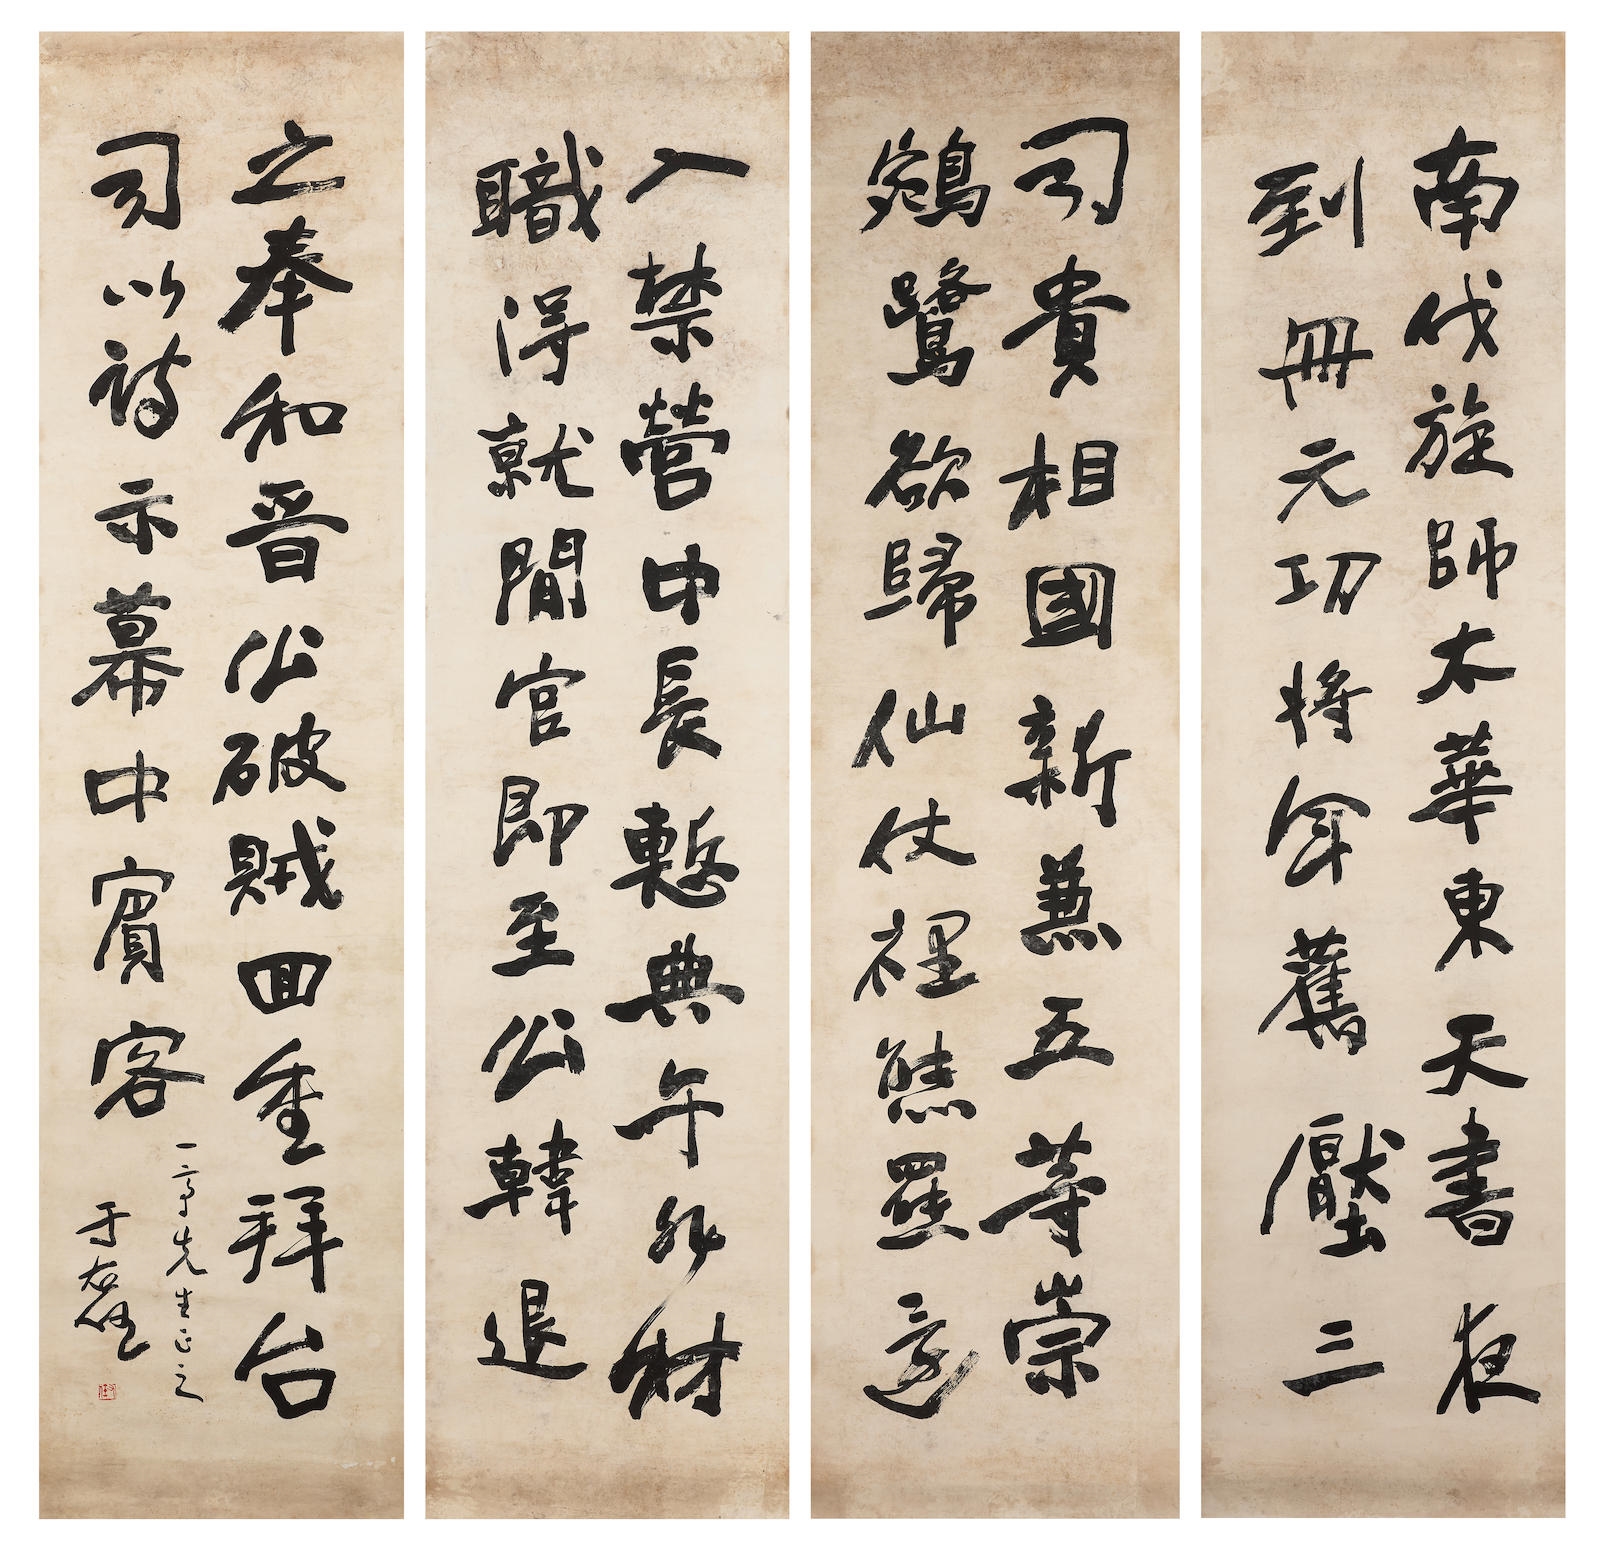 南伐旋師太華東天書夜
到冊元功將軍舊壓三
司貴相國新兼五等崇
鵷鷺欲歸仙仗裡熊羆還
入禁營中長慙典午非材
職得就閒官即至公韓退
之奉和晉公破賊回重拜台
司以詩示幕中賓客
一亭先生正之
于右任